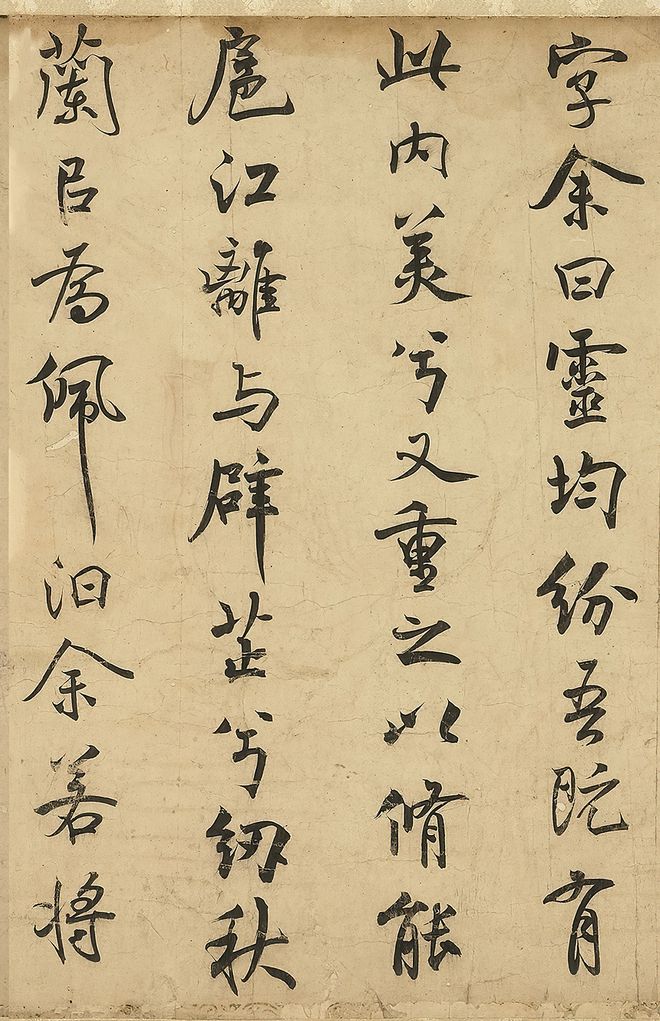 字余曰靈均紛吾既有
此内美兮又重之以脩能
扈江離与辟芷兮紉秋
蘭㠯為佩汩余若将